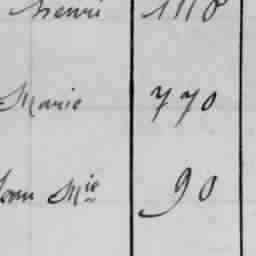 henri 1110
Marie 770
Mie 90